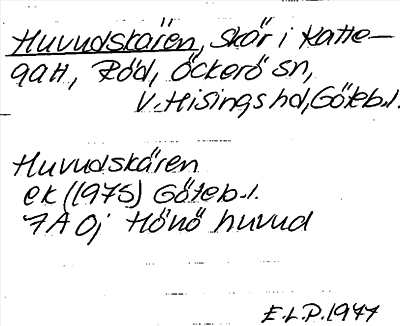 Huvudskären, skär i Katte-
gatt, Röd, Öckerö sn,
V. Hisings hd, Göteb. l.
Huvudskären
ek (1975) Göteb. l.
7A 0j Hönö huvud
E.L.P. 1977